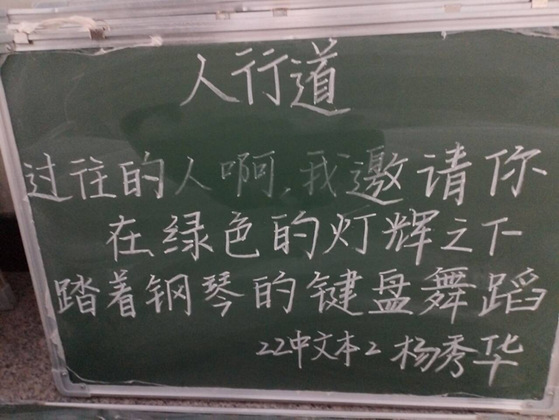 人行道
过往的人啊，我邀请你
在绿色的灯辉之下
踏着钢琴的键盘舞蹈
22中文本2 杨秀华